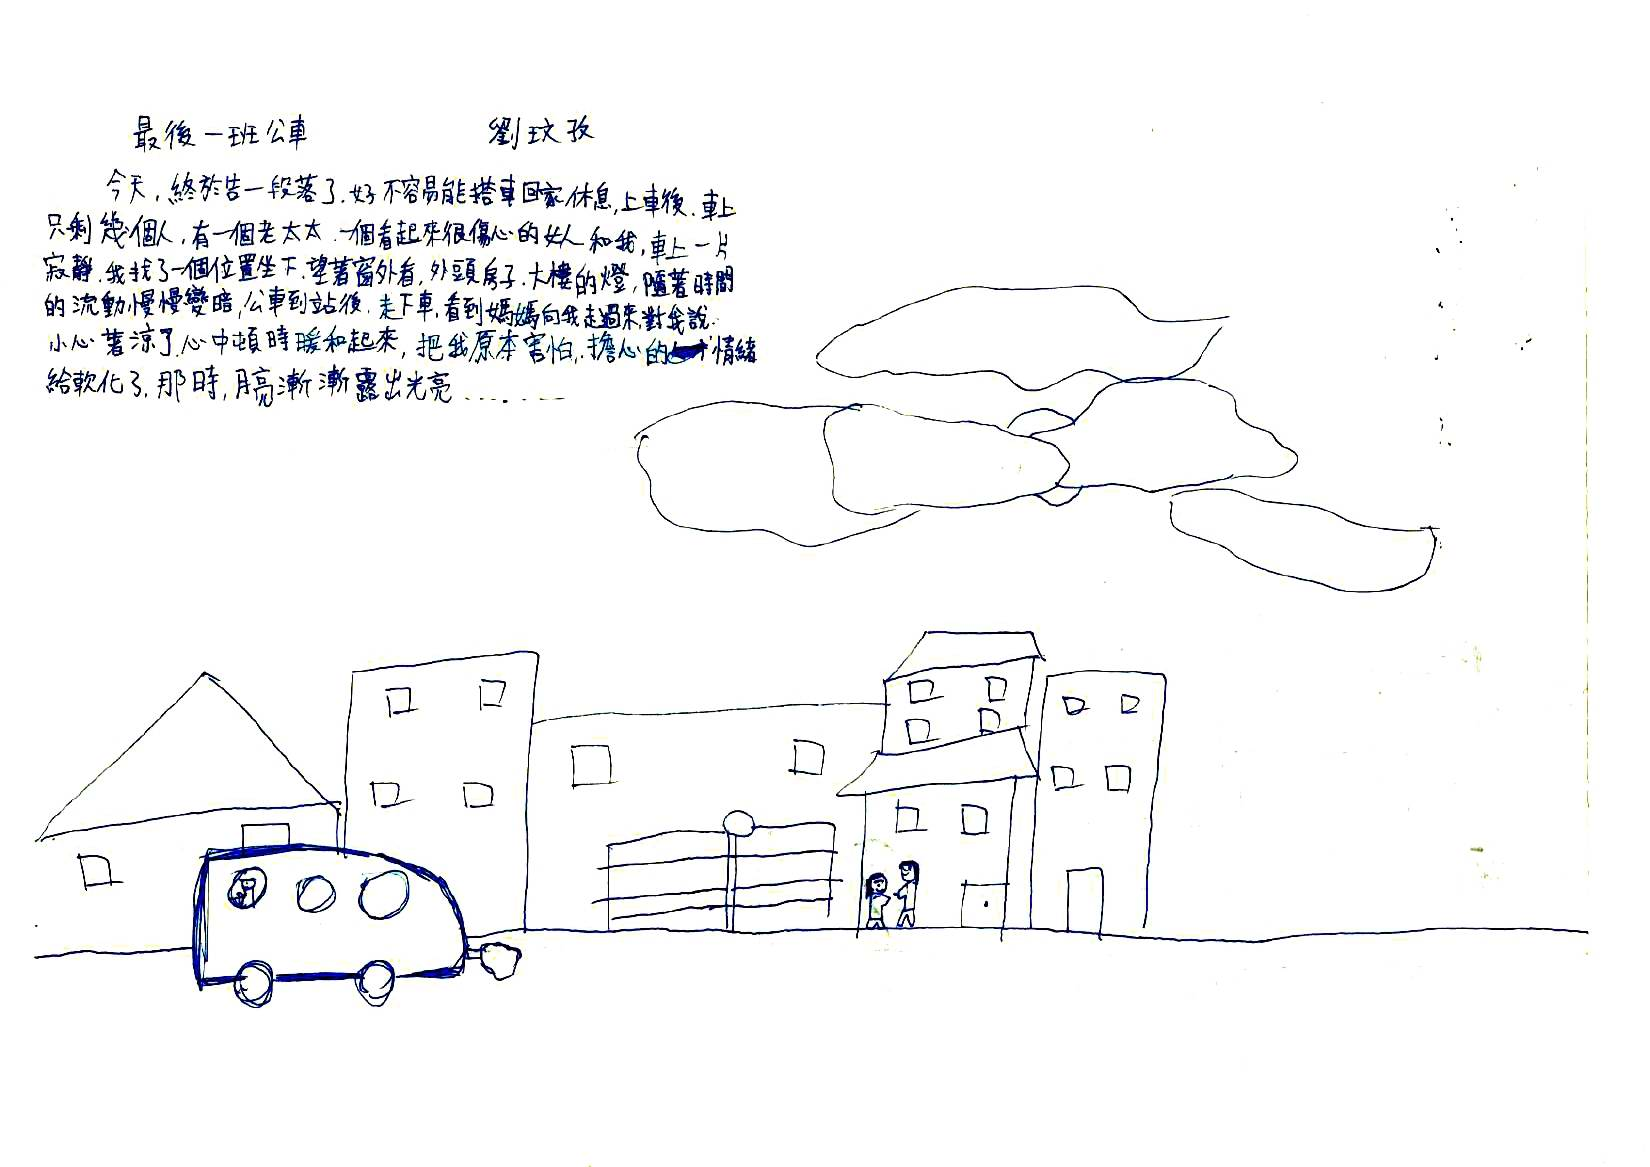 最後一班公車 劉玟孜
今天，終於告一段落了，好不容易能搭車回家休息，上車後，車上
只剩幾個人，有一個老太太，一個看起來很傷心的女人和我，車上一片
寂靜，我找了一個位置坐下，望著窗外看，外頭房子、大樓的燈，隨著時間
的流動慢慢變暗，公車到站後，走下車，看到媽媽向我走過來，對我說：
小心著涼了，心中頓時暖和起來，把我原本害怕，擔心的情緒
給軟化了，那時，月亮漸漸露出光亮……